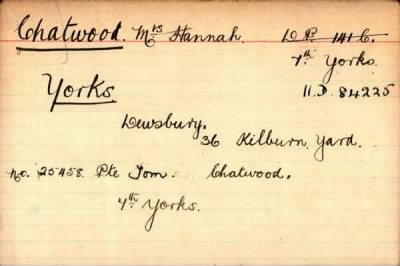 Chatwood. Mrs Hannah. D.P. 141 C.
7th Yorks.
Yorks
11.D. 84225
Dewsbury.
36 Kilburn Yard.
No. 25458. Pte Tom. Chatwood.
7th Yorks.